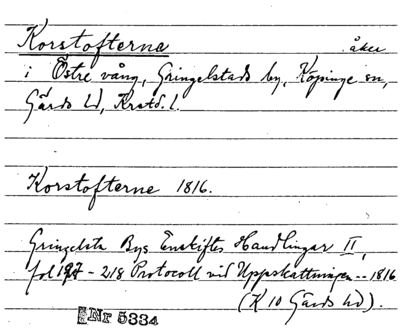 Korstofterne åker
i Östre vång, Gringelstads by, Köpinge sn,
Gärds hd, Krstd. l.
Korstofterne 1816.
Gringelsta Bys Enskiftes Handlingar II,
fol 197 - 218 Protocoll vid Uppskattningen -- 1816
(K 10 Gärds hd).
Nr 5334